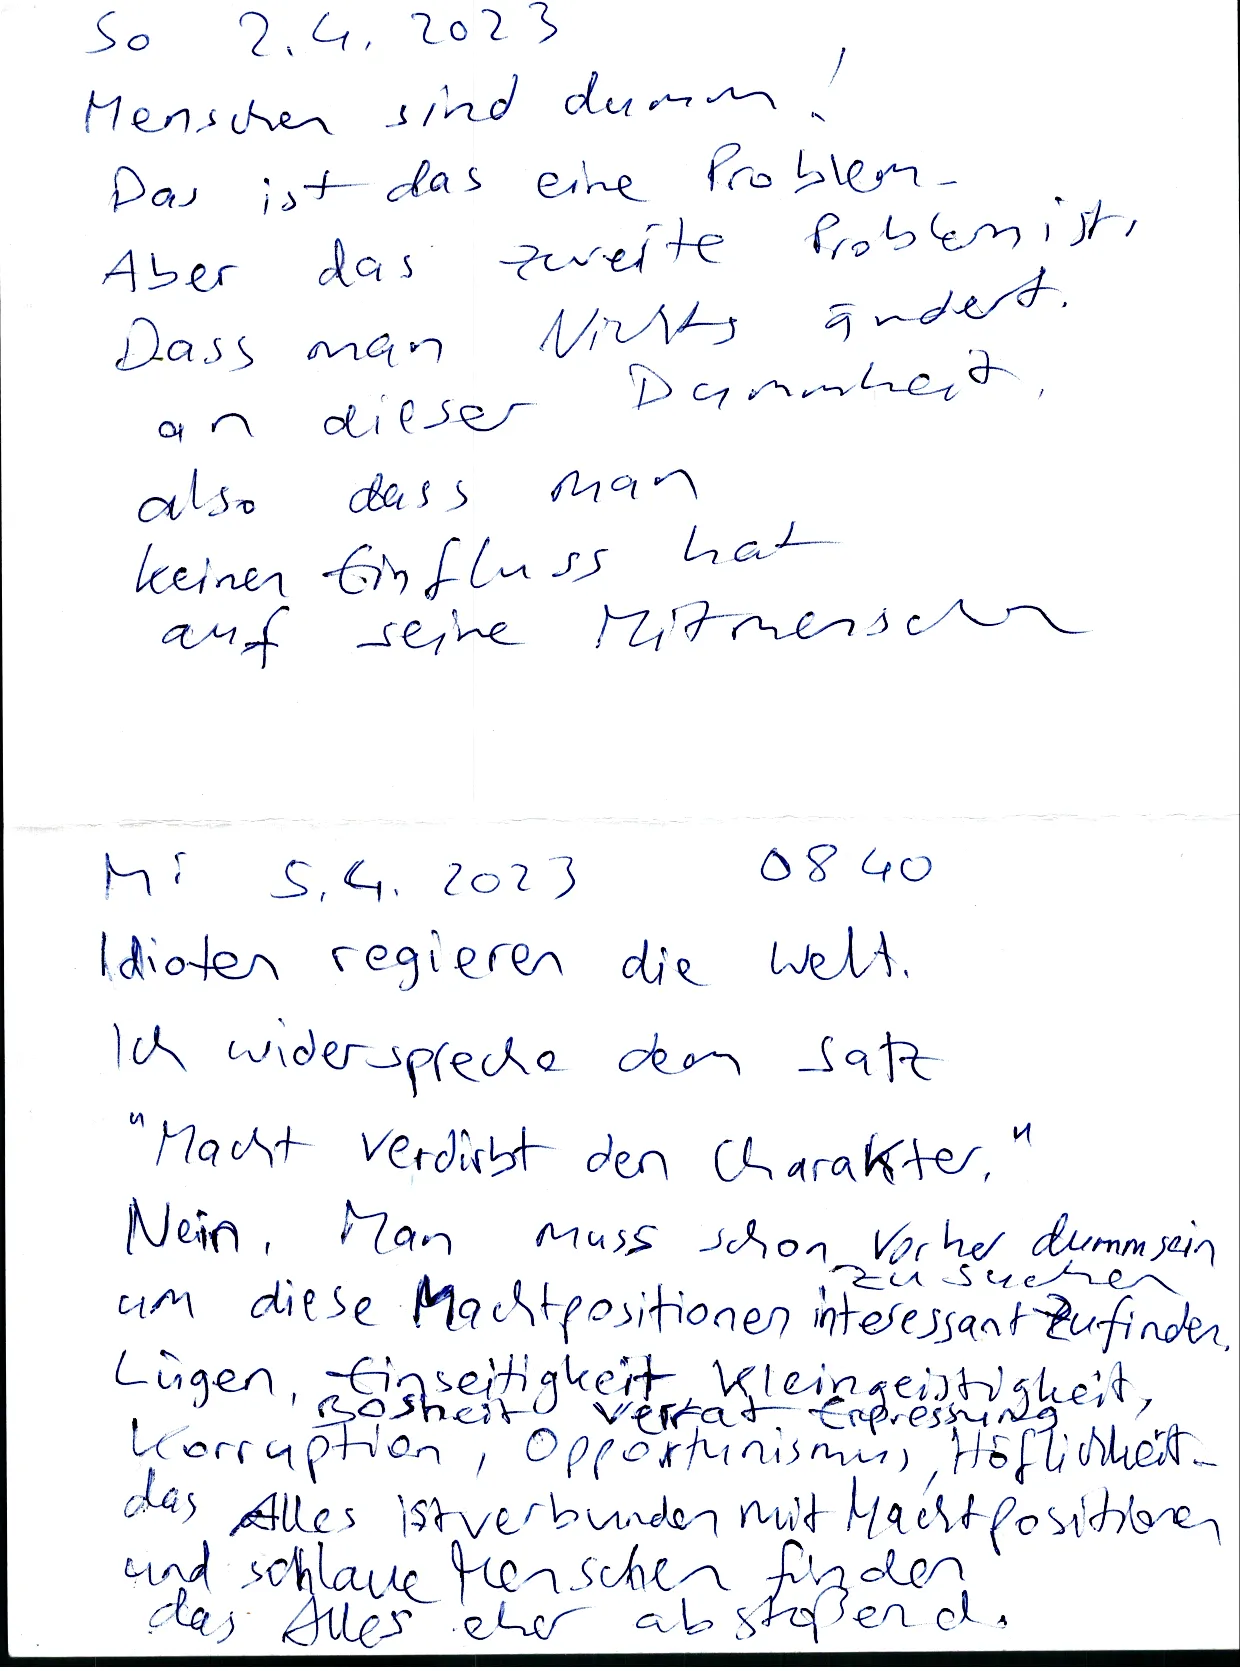 So 2.4.2023
Menschen sind dumm!
Das ist das eine Problem.
Aber das zweite Problem ist,
Dass man Nichts ändert.
an dieser Dummheit.
also dass man
keinen Einfluss hat
auf seine Mitmenschen
Mi 5.4.2023 0840
Idioten regieren die Welt.
Ich widerspreche dem Satz
"Macht verdirbt den Charakter."
Nein. Man muss schon vorher dumm sein
zu suchen
um diese Machtpositionen interessant zu finden.
Lügen, Einseitigkeit, Kleingeistigkeit,
Bosheit Verrat Erpressung
Korruption, Opportunismus, Höflichkeit-
das Alles ist verbunden mit Machtpositionen
und schlaue Menschen finden
das Alles eher abstoßend.